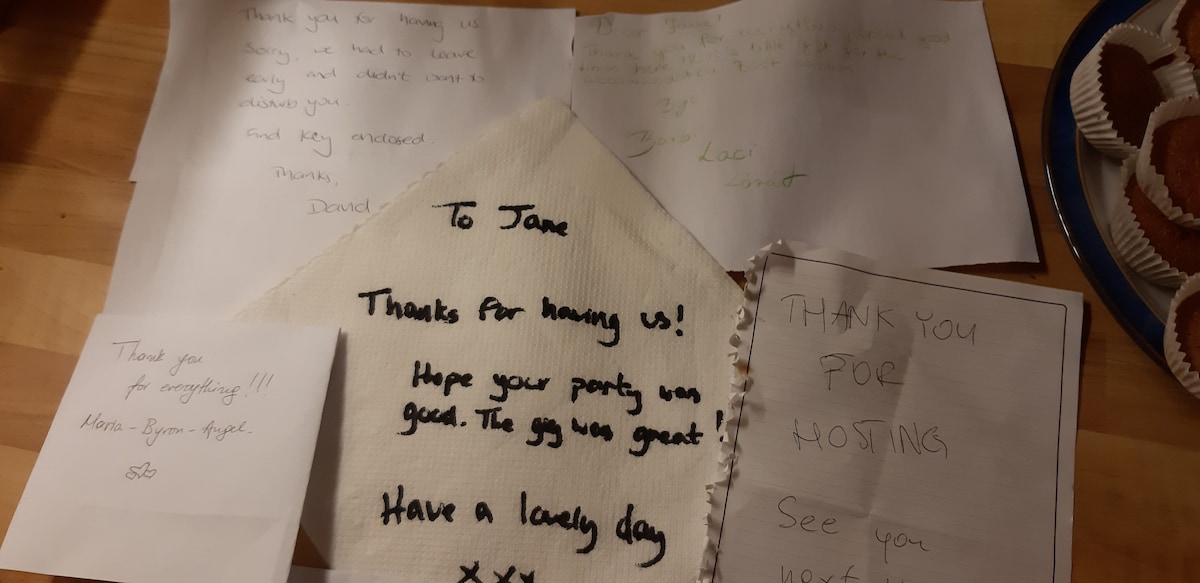 Thank you for having us
Sorry, we had to leave
early and didn't want to
disturb you.
find key enclosed.
Thanks,
David
Jane!
Thank you for
good
time here
is a little
for the
Laci
To Jane
Thanks for having us!
Hope your party was
good. The gig was great!
Have a lovely day
xxx
Thank you
for everything!!!
Maria - Byron - Angel.
THANK YOU
FOR
HOSTING
See you
next